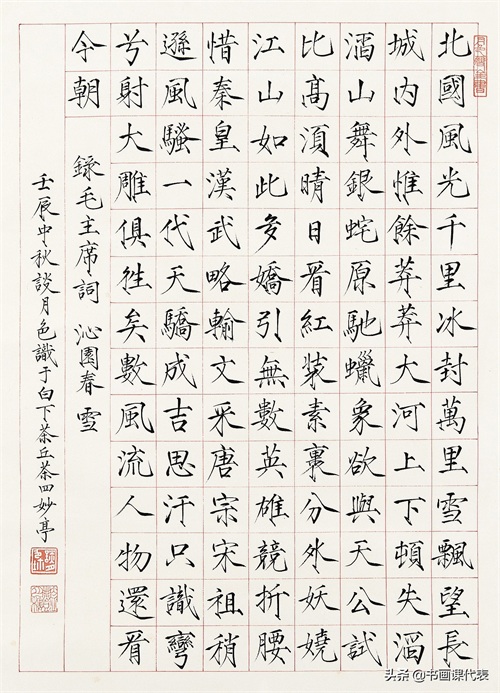 北國風光千里冰封萬里雪飄望長
城內外惟餘莽莽大河上下頓失滔
滔山舞銀蛇原馳蠟象欲與天公試
比高須晴日看紅裝素裹分外妖嬈
江山如此多嬌引無數英雄競折腰
惜秦皇漢武略輸文采唐宗宋祖稍
遜風騷一代天驕成吉思汗只識彎
弓射大雕俱往矣數風流人物還看
今朝
錄毛主席詞 沁園春 雪
壬辰中秋談月色識于白下茶丘茶四妙亭
头条 @书画课代表